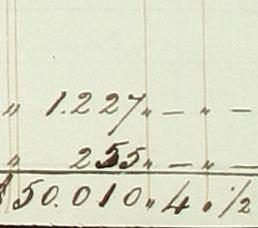 " 1.227 " — " —
" 255 " — " —
$ 50.010 " 4 " 1/2